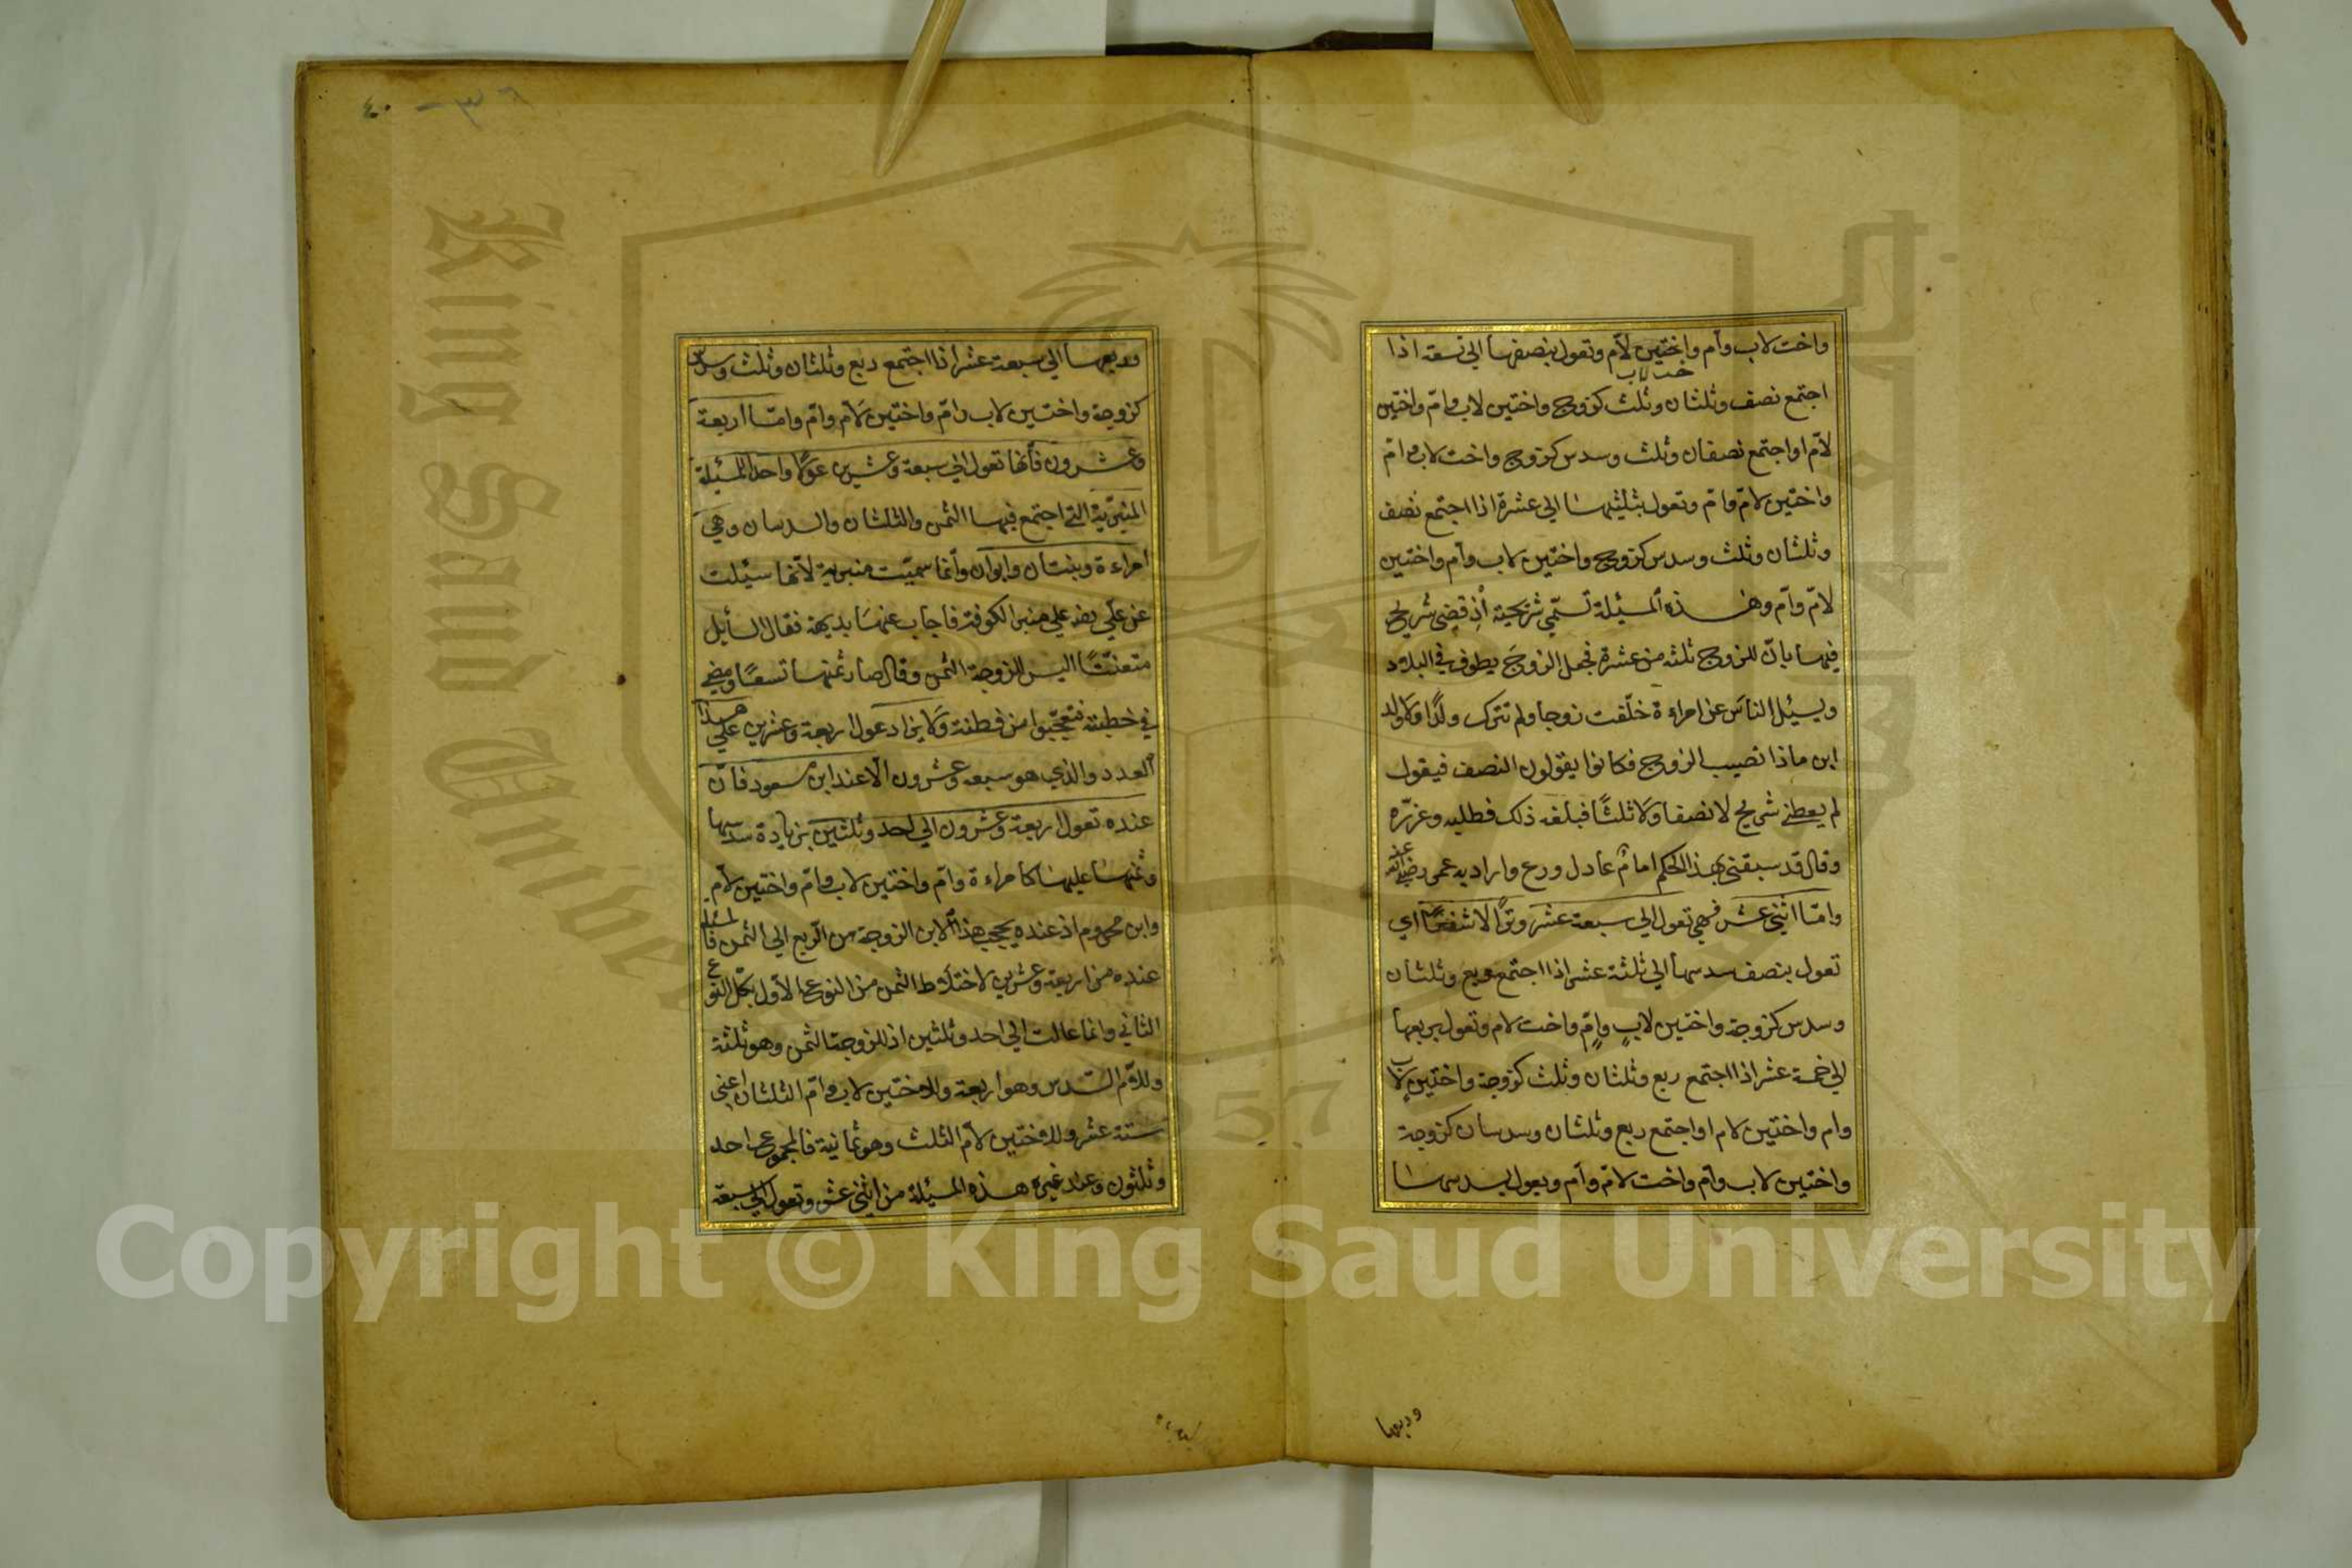 واخت لاب وام واختين لام وتعول بنصفها الي تسعة اذا
اجتمع نصف وثلثان وثلث كزوج واختين لاب وامّ واختين
لامّ او اجتمع نصفان وثلث وسدس كزوج واخت لاب وامّ
واختين لامّ وامّ وتعول بثلثيها الي عشرة اذا اجتمع نصف
وثلثان وثلث وسدس كزوج واختين لاب وام واختين
لامّ وامّ وهذه المسئلة تسمّي شريحية اذ قضي شريح
فيها بانّ للزوج ثلثه من عشرة فجعل الزوج يطوف في البلاد
ويسئل الناس عن امراءة خلّفت زوجا ولم تترك ولدًا ولا ولد
ابن ماذا نصيب الزوج فكانوا يقولون النصف فيقول
لم يعطني شريح لا نصفا ولا ثلثًا فبلغه ذلك فطلبه وعزّره
وقال قد سبقني بهذا الحكم امامٌ عادل ورع واراد به عمر رضي الله عنه
وامّا اثني عشر فهي تعول الي سبعة عشر وترًا لا شفعًا اي
تعول بنصف سدسها الي ثلثة عشر اذا اجتمع ربع وثلثان
وسدس كزوجة واختين لابٍ وامٍّ واخت لام وتعول بربعها
الي خمسة عشر اذا اجتمع ربع وثلثان وثلث كزوجة واختين لاب
وام واختين لام او اجتمع ربع وثلثان وسدسان كزوجة
واختين لاب وام واخت لامّ وام وبعول بسدسها
وربعها
٤٠ - ٣٦
وربعها الي سبعة عشر اذا اجتمع ربع وثلثان وثلث وسدس
كزوجة واختين لاب وامّ واختين لام وامّ وامّا اربعة
وعشرون فانّها تعول الي سبعة وعشرين عولًا واحدا المسئلة
المنبريّة التي اجتمع فيها الثمن والثلثان والسدسان وهي
امراءة وبنتان وابوان وانّما سميّت منبرية لانّها سيئلت
عن علي رضه علي منبر الكوفة فاجاب عنها بديهة فقال السأيل
متعنتًا اليس للزوجة الثمن وقال صار ثمنها تسعًا ومضي
في خطبته فتعجّبوا من فطنة ولا يزاد عول اربعة وعشرين علي هذا
العدد والذي هو سبعه وعشرون الّا عند ابن مسعود فانّ
عنده تعول اربعة وعشرون الي احد وثلثين بزيادة سدسها
وثمنها عليها كامراءة وامّ واختين لاب وامّ واختين لام
وابن محروم اذ عنده يحجب هذا الابن الزوجة من الربع الي الثمن فالمسئلة
عنده من اربعة وعشرين لاختلاط الثمن من النوع الاول بكلّ النوع
الثاني وانما عالت الي احد وثلثين اذ للزوجة الثمن وهو ثلثة
وللامّ السّدس وهو اربعة وللاختين لاب وامّ الثلثان اعني
ستة عشر وللاختين لام الثلث وهو ثمانية فالمجموع احد
وثلثون وعند غيره هذه المسئلة من اثني عشر وتعول الي سبعة
Copyright © King Saud University
King Saud Univer
1957